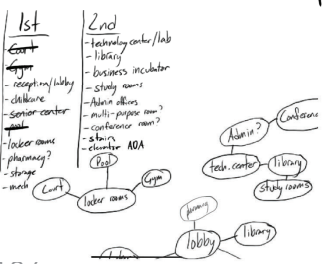 1st
Court
Gym
- reception/lobby
- childcare
- senior center
- pool
- locker rooms
- pharmacy?
- storage
- mech
2nd
- technology center/lab
- library
- business incubator
- study rooms
- Admin offices
- multi-purpose room?
- conference room?
- stairs
- elevator ADA
Pool
Court
Gym
locker rooms
Conferenc
Admin?
tech. center
library
study rooms
pharmacy
lobby
library